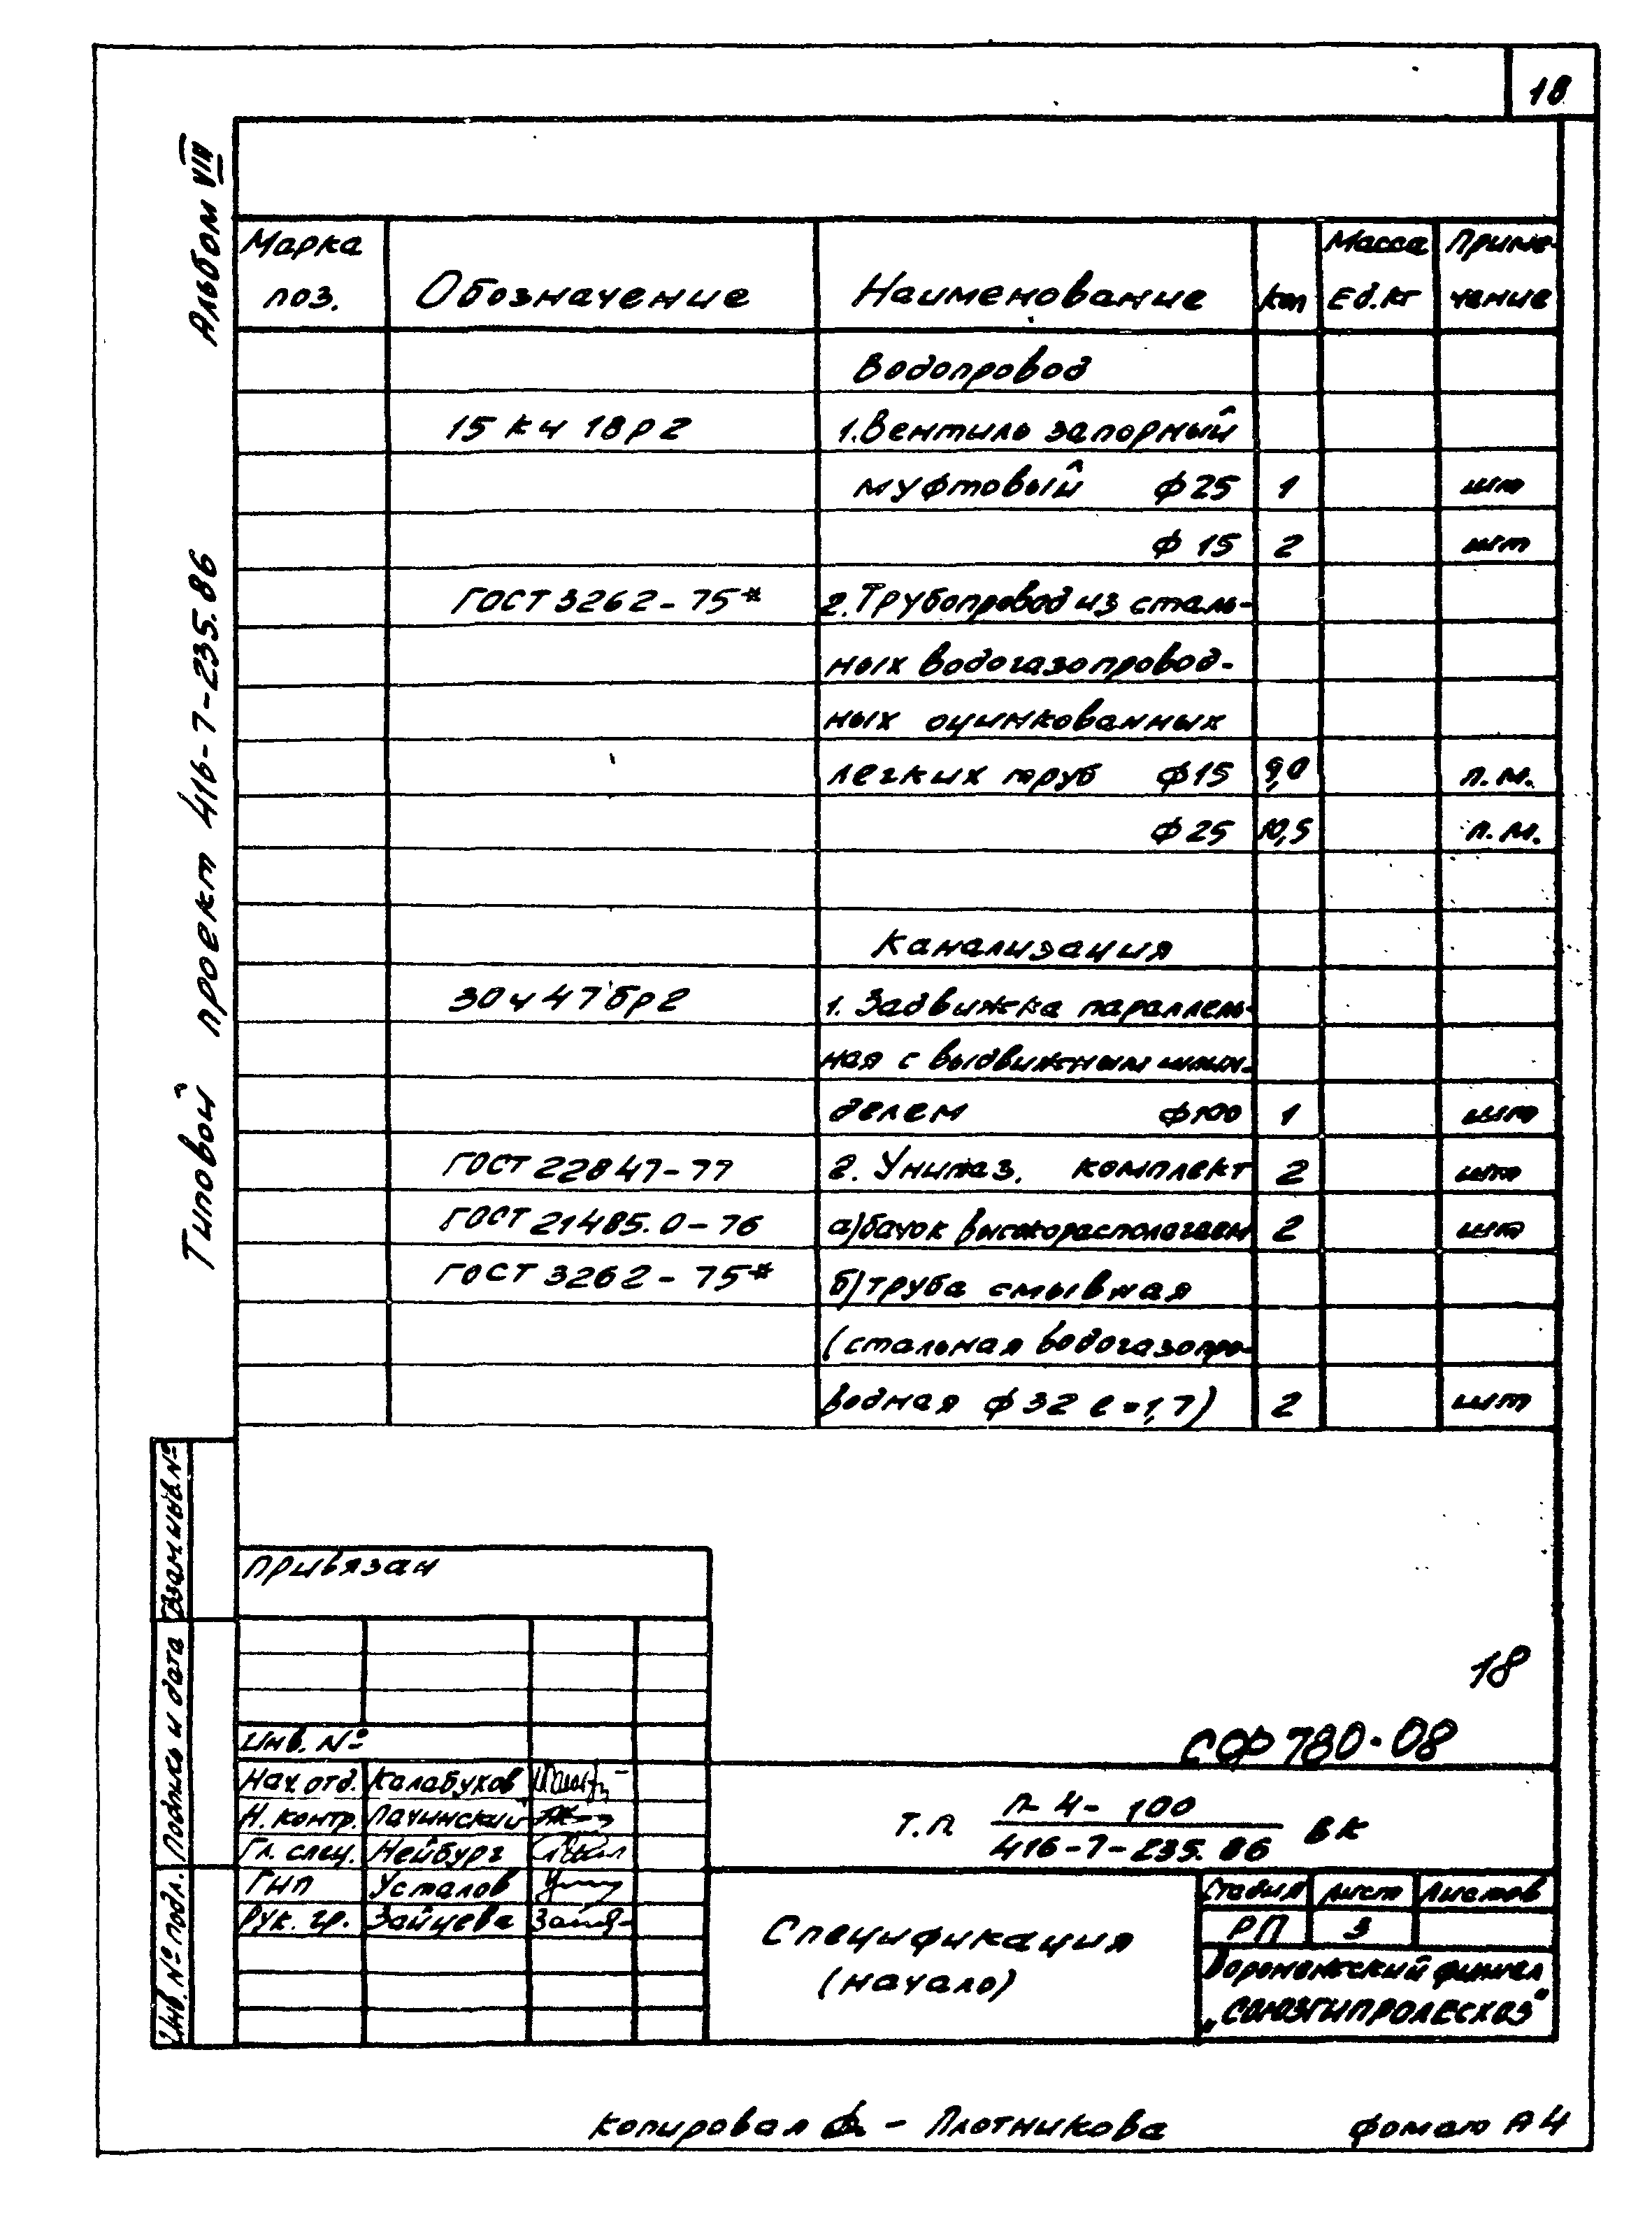 18
Альбом VIII
Типовой проект 416-7-235.86
Марка поз.
Обозначение
Наименование
Кол
Масса Ед.кг
Приме-чение
Водопровод
15 кч 18р2 1. Вентиль запорный
муфтовый ф25 1 шт
ф 15 2 шт
ГОСТ 3262-75* 2. Трубопровод из сталь-
ных водогазопровод-
ных оцинкованных
легких труб ф15 9,0 п.м.
ф25 10,5 п.м.
Канализация
30ч 47бр2 1. Задвижка параллель-
ная с выдвижным шпин-
делем ф100 1 шт
ГОСТ 22847-77 2. Унитаз. комплект 2 шт
ГОСТ 21485.0-76 а) бачок высокорасполагаем 2 шт
ГОСТ 3262-75* б) труба смывная
(стальная водогазопро-
водная ф32 l=1,7) 2 шт
Взам инв. №
Подпись и дата
Инв. № подл.
Привязан
Инв. №
Нач. отд. Калабухов
Н. контр. Лачинский
Гл. спец. Нейбург
ГИП Усталов
Рук. гр. Зайцева
18
СФ 780-08
Т.П П-4-100 / 416-7-235.86 ВК
Спецификация
(начало)
Стадия Лист Листов
РП 3
Воронежский филиал
„СОЮЗГИПРОЛЕСХОЗ"
Копировал - Плотникова фомаю А4